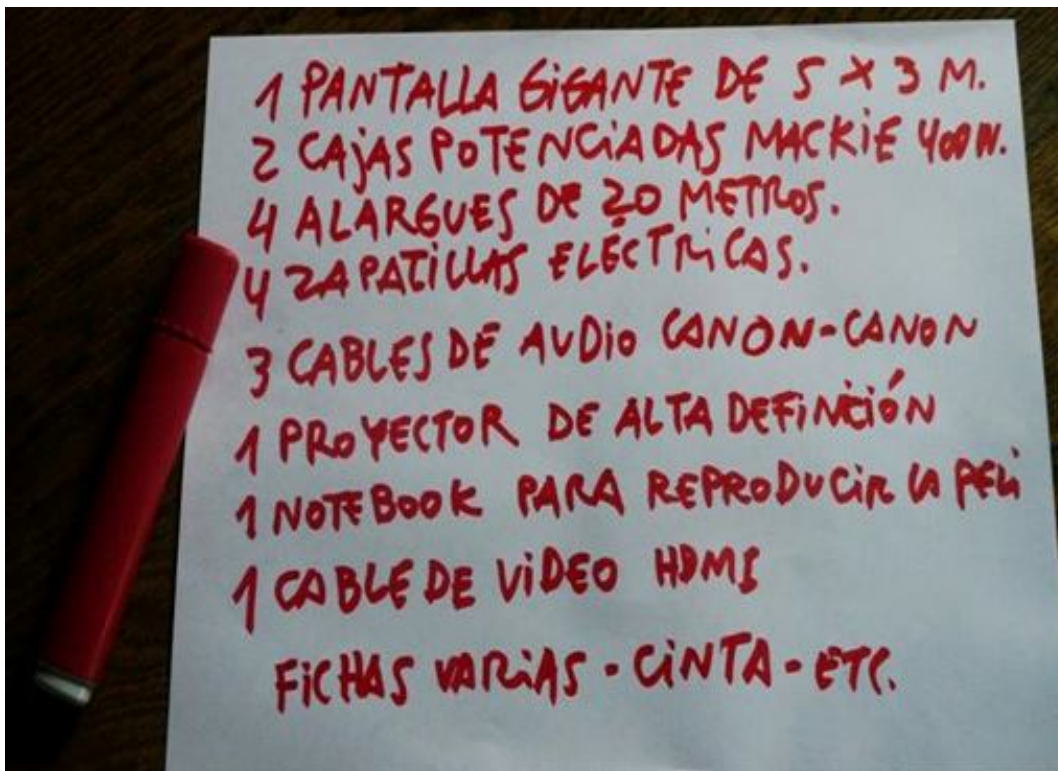 1 PANTALLA GIGANTE DE 5 X 3 M.
2 CAJAS POTENCIADAS MACKIE 400W.
4 ALARGUES DE 20 METROS.
4 ZAPATILLAS ELÉCTRICAS.
3 CABLES DE AUDIO CANON-CANON
1 PROYECTOR DE ALTA DEFINICIÓN
1 NOTEBOOK PARA REPRODUCIR LA PELI
1 CABLE DE VIDEO HDMI
FICHAS VARIAS - CINTA - ETC.